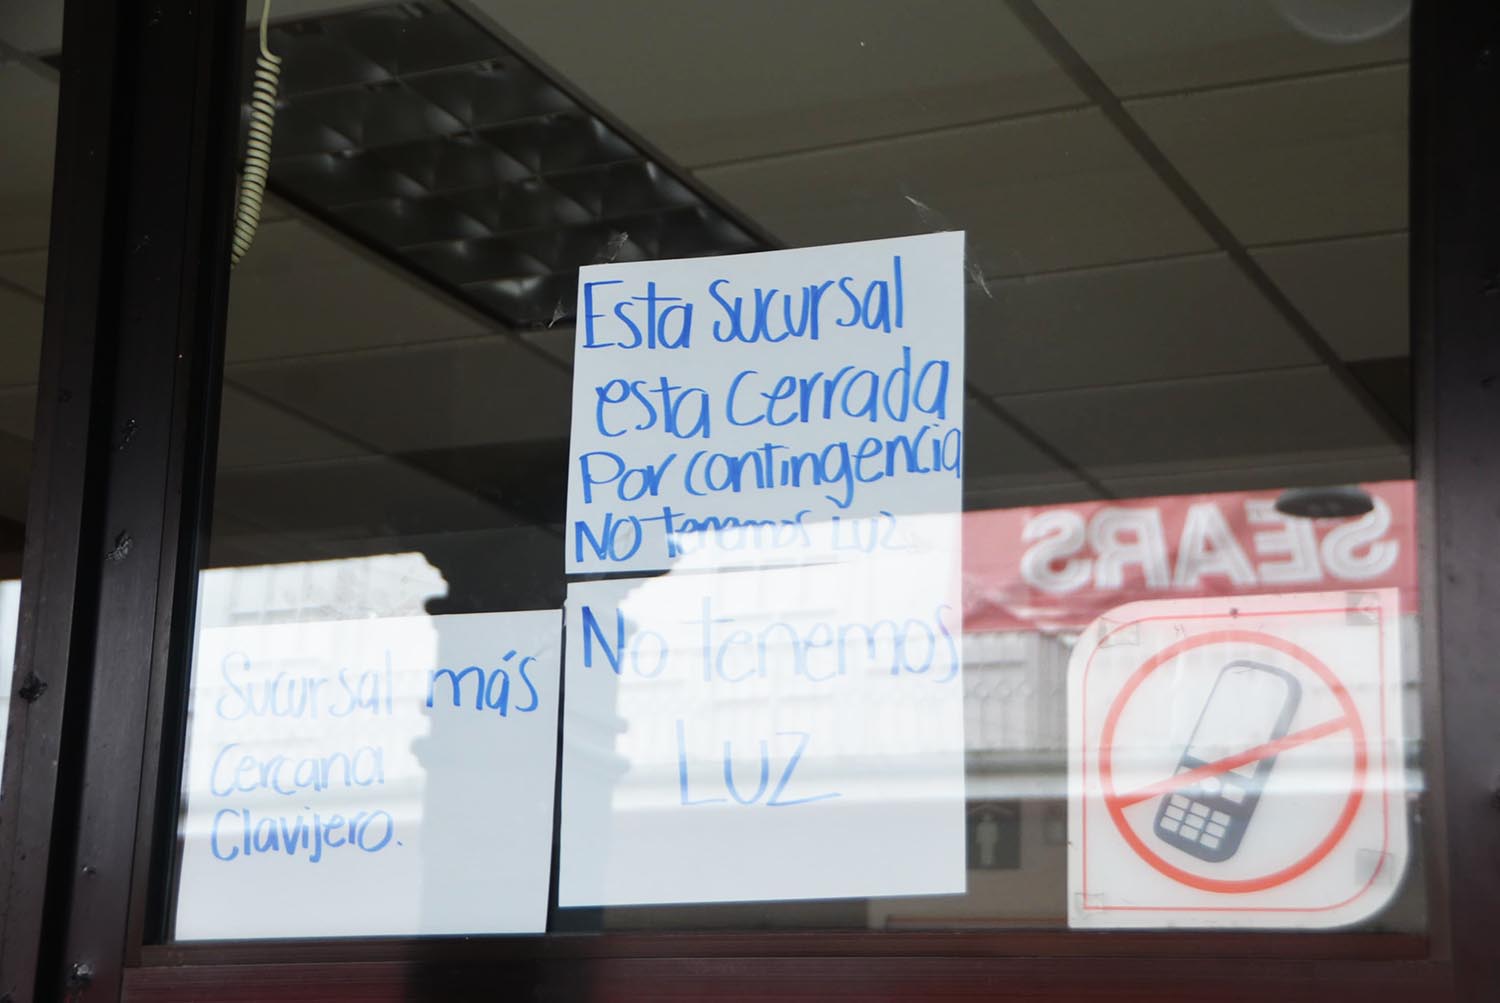 Esta sucursal
esta cerrada
Por contingencia
NO tenemos LUZ
No tenemos
LUZ
Sucursal más
Cercana
Clavijero.
SEARS